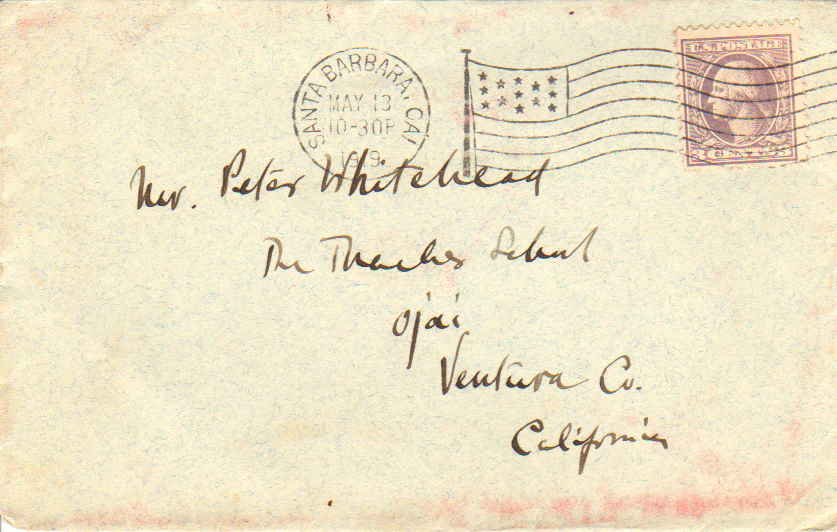 SANTA BARBARA, CAL
MAY 13
10-30P
1919
U.S. POSTAGE
Mr. Peter Whitehead
The Thacher School
Ojai
Ventura Co.
California